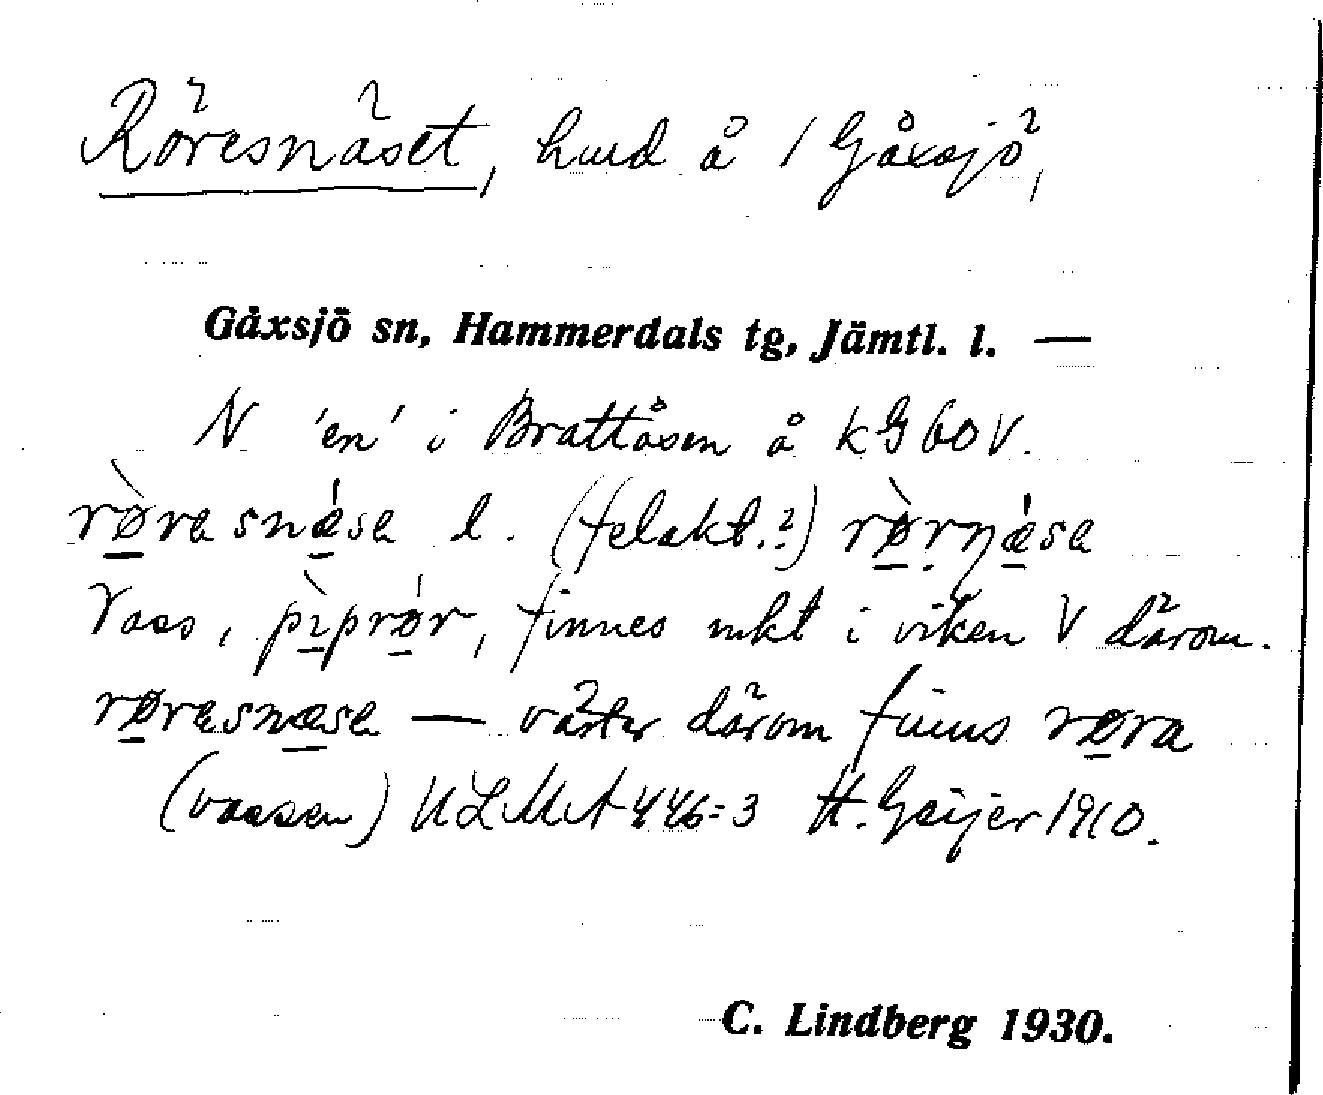 Röresnäset, hmd å 1 Gåxsjö,
Gåxsjö sn, Hammerdals tg, Jämtl. l. —
N 'en' i Brattåsen å kG 60 V.
rø̀resnǽse l. (felakt.?) rø̀rṇǽse
Vass, pìprǿr, finnes mkt i viken V därom.
røresnæse — väster därom finns røra
(vassen) ULMA 446:3 H. Geijer 1910.
C. Lindberg 1930.